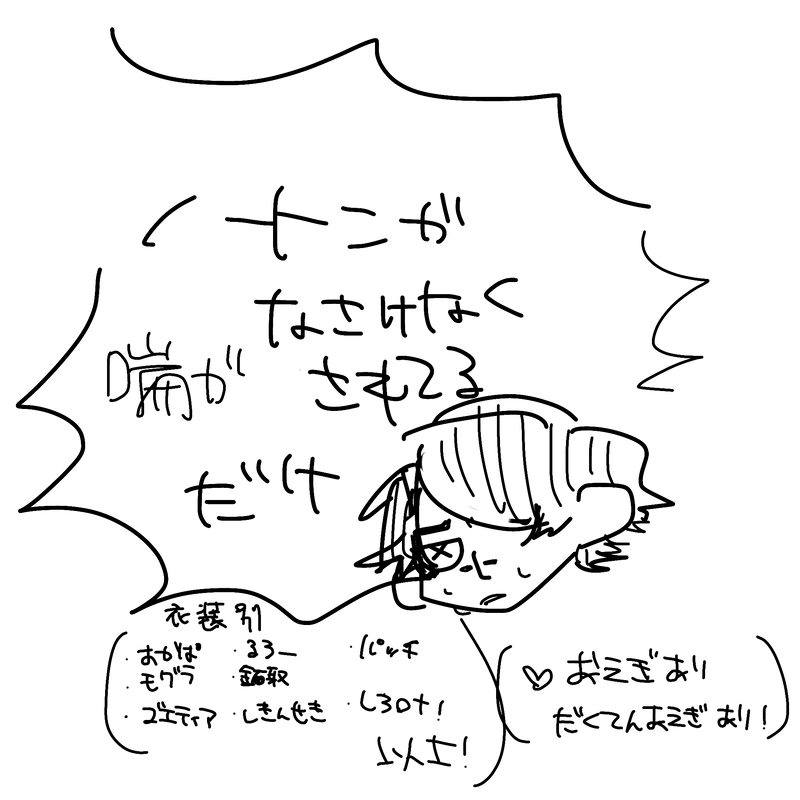 ナニが
なさけなく
されてる
喘が
だけ
衣装別
・おかっぱ ・るろー ・パッチ
・モグラ
・ゴエティア ・しきんせき ・しろナ!
以上!
♡おえぎあり
だくてんおえぎあり!